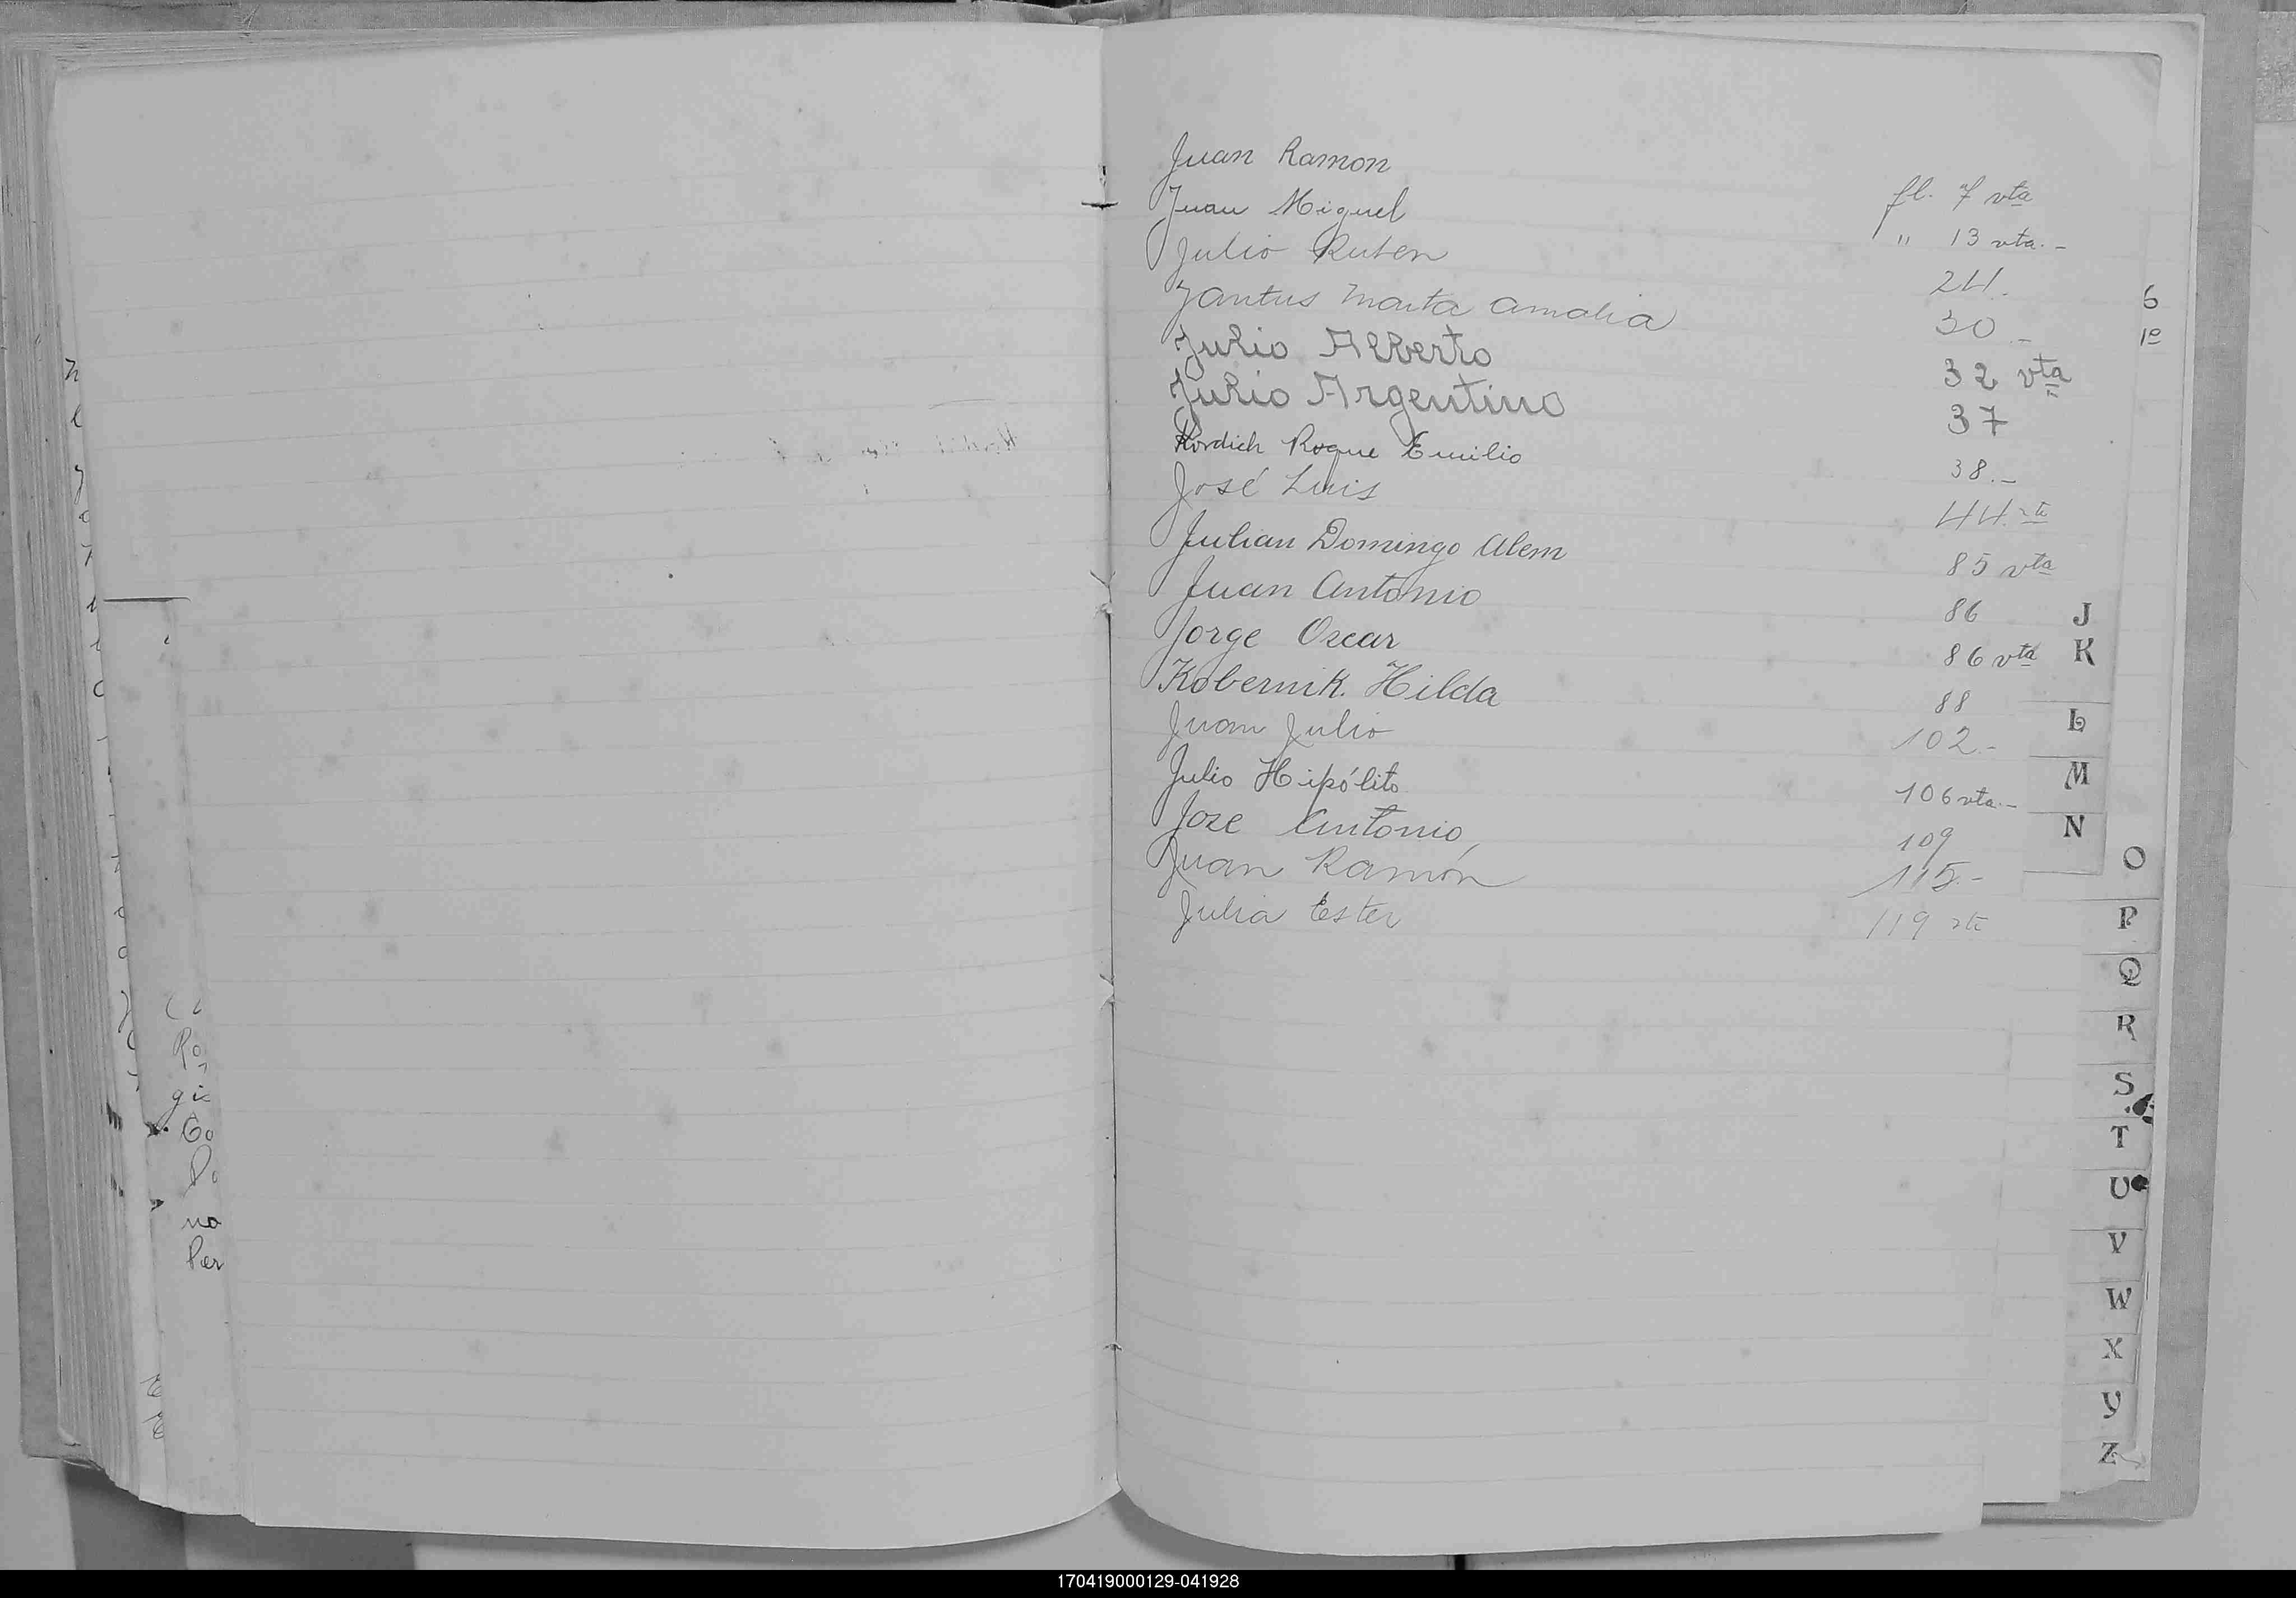 Juan Ramon fl. 7 vta
Juan Miguel " 13 vta.-
Julio Ruben 24.
Jantus Marta Amalia 30.-
Julio Alberto 32 vta
Julio Argentino 37
Kordich Roque Emilio 38.-
José Luis 44 vta
Julian Domingo Alem 85 vta
Juan Antonio 86
Jorge Oscar 86 vta
Kobernik Hilda 88
Juan Julio 102.-
Julio Hipólito 106 vta.-
Jose Antonio 109
Juan Ramón 115.-
Julia Ester 119 vta
6
1º
J
K
L
M
N
O
P
Q
R
S
T
U
V
W
X
Y
Z
Ro
gi
Go
no
Per
170419000129-041928